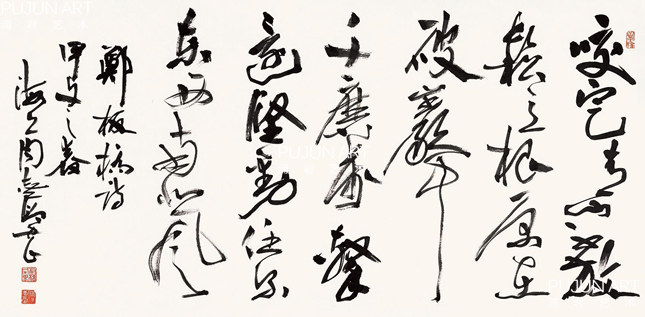 咬定青山不放
鬆立根原在
破巖中
千磨萬擊
還堅勁任爾
東西南北風
鄭板橋詩
甲午之春
海上周
PUJUN ART
PUJUN ART
PUJUN ART